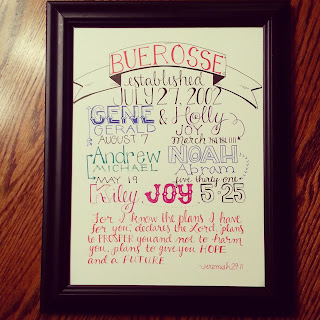 BUEROSSE
established
JULY 27, 2002
GENE & Holly
GERALD JOY,
AUGUST 7 march
Andrew NOAH
MICHAEL Abram
MAY 19 five thirty one
Kiley JOY 5·25
For I know the plans I have
for you, declares the Lord, plans
to PROSPER you and not to harm
you, plans to give you HOPE
and a FUTURE
Jeremiah 29:11